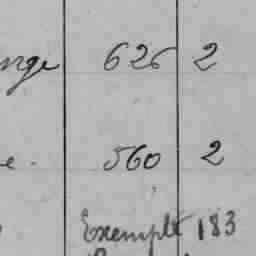 nge 626 2
e. 560 2
Exempté 183